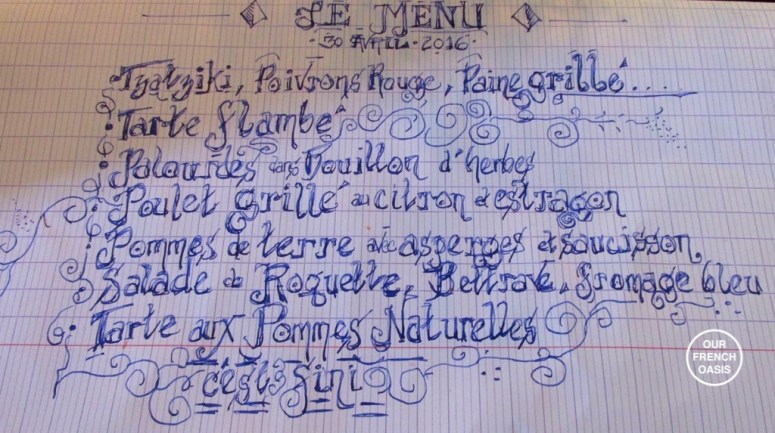 LE MENU
·30 AVRIL·2016·
Tzatziki, Poivrons Rouge, Paine grillé....
Tarte flambé
Palourdes dans Bouillon d'herbes
Poulet grillé au citron et estragon
Pommes de terre avec asperges et saucisson,
Salade de Roquette, Bettrave, fromage bleu
Tarte aux Pommes Naturelles
c'est fini
OUR
FRENCH
OASIS